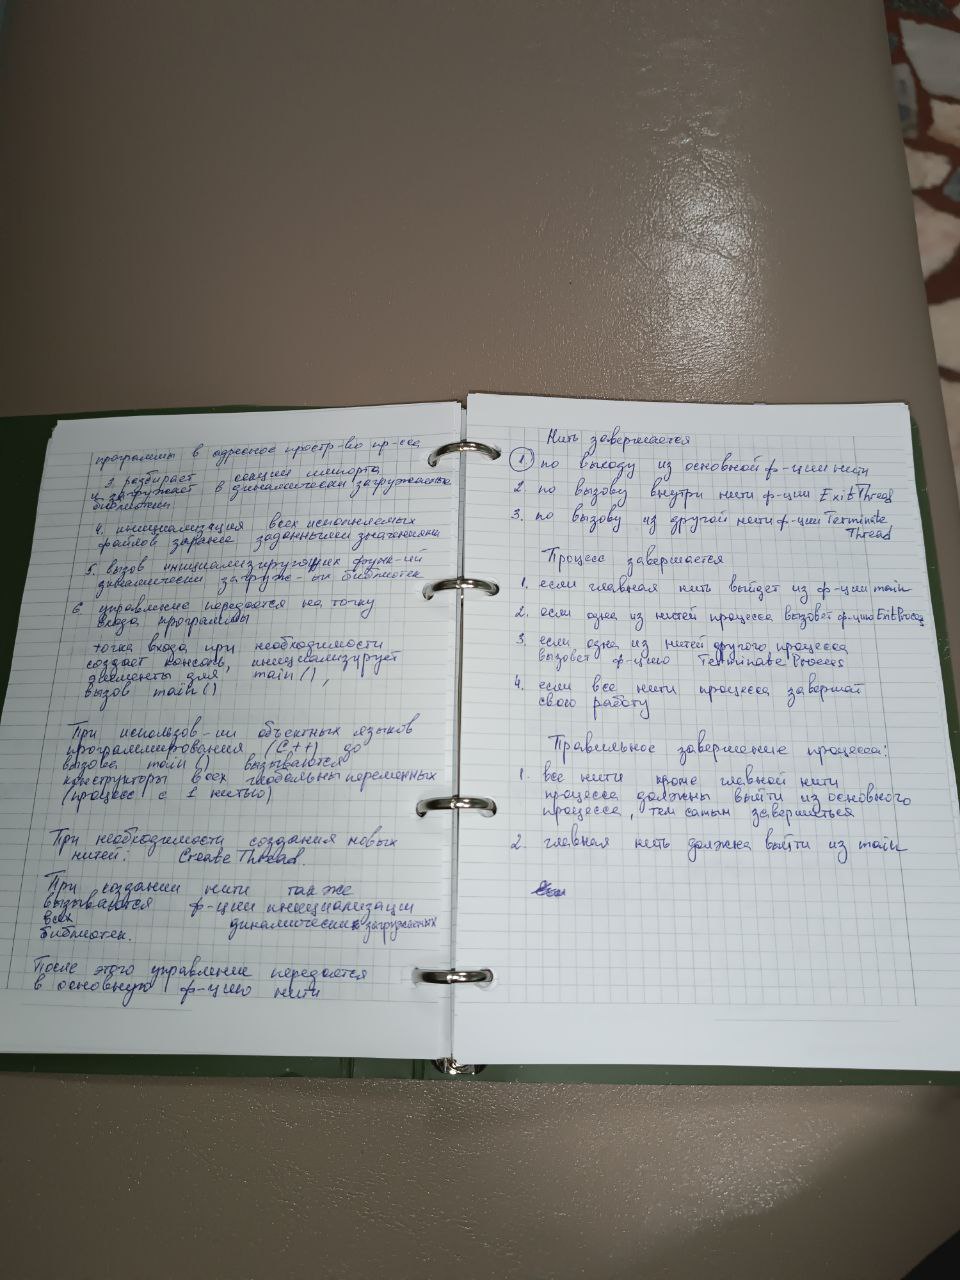 программы в адресное простр-во пр-сса
3. разбирает секции импорта
и загружает в динамически загружаемые
библиотеки
4. инициализация всех исполняемых
файлов заранее заданными значениями
5. вызов инициализирующих функ-ий
динамически загруж-ых библиотек
6 управление передается на точку
входа программы
точка входа при необходимости
создает консоль, инициализирует
для main(),
вызов main()
При использов-ии объектных языков
программирования (C++) до
вызова main() вызываются
конструкторы всех глобальны переменных
(процесс с 1 нитью)
При необходимости создания новых
нитей: Create Thread.
При создании нити также
вызываются ф-ции инициализации
всех динамически загружаемых
библиотек.
После этого управление передается
в основную ф-цию нити
Нить завершается
1. по выходу из основной ф-ции нити
2. по вызову внутри нити ф-ции Exit Thread
3. по вызову из другой нити ф-ции Terminate
Thread
Процесс завершается
1. если главная нить выйдет из ф-ции main
2. если одна из нитей процесса вызовет ф-цию Exit Process
3. если одна из нитей другого процесса
вызовет ф-цию Terminate Process
4. если все нити процесса завершат
свою работу
Правильное завершение процесса:
1. все нити кроме главной нити
процесса должны выйти из основного
процесса, тем самым завершиться
2. главная нить должна выйти из main